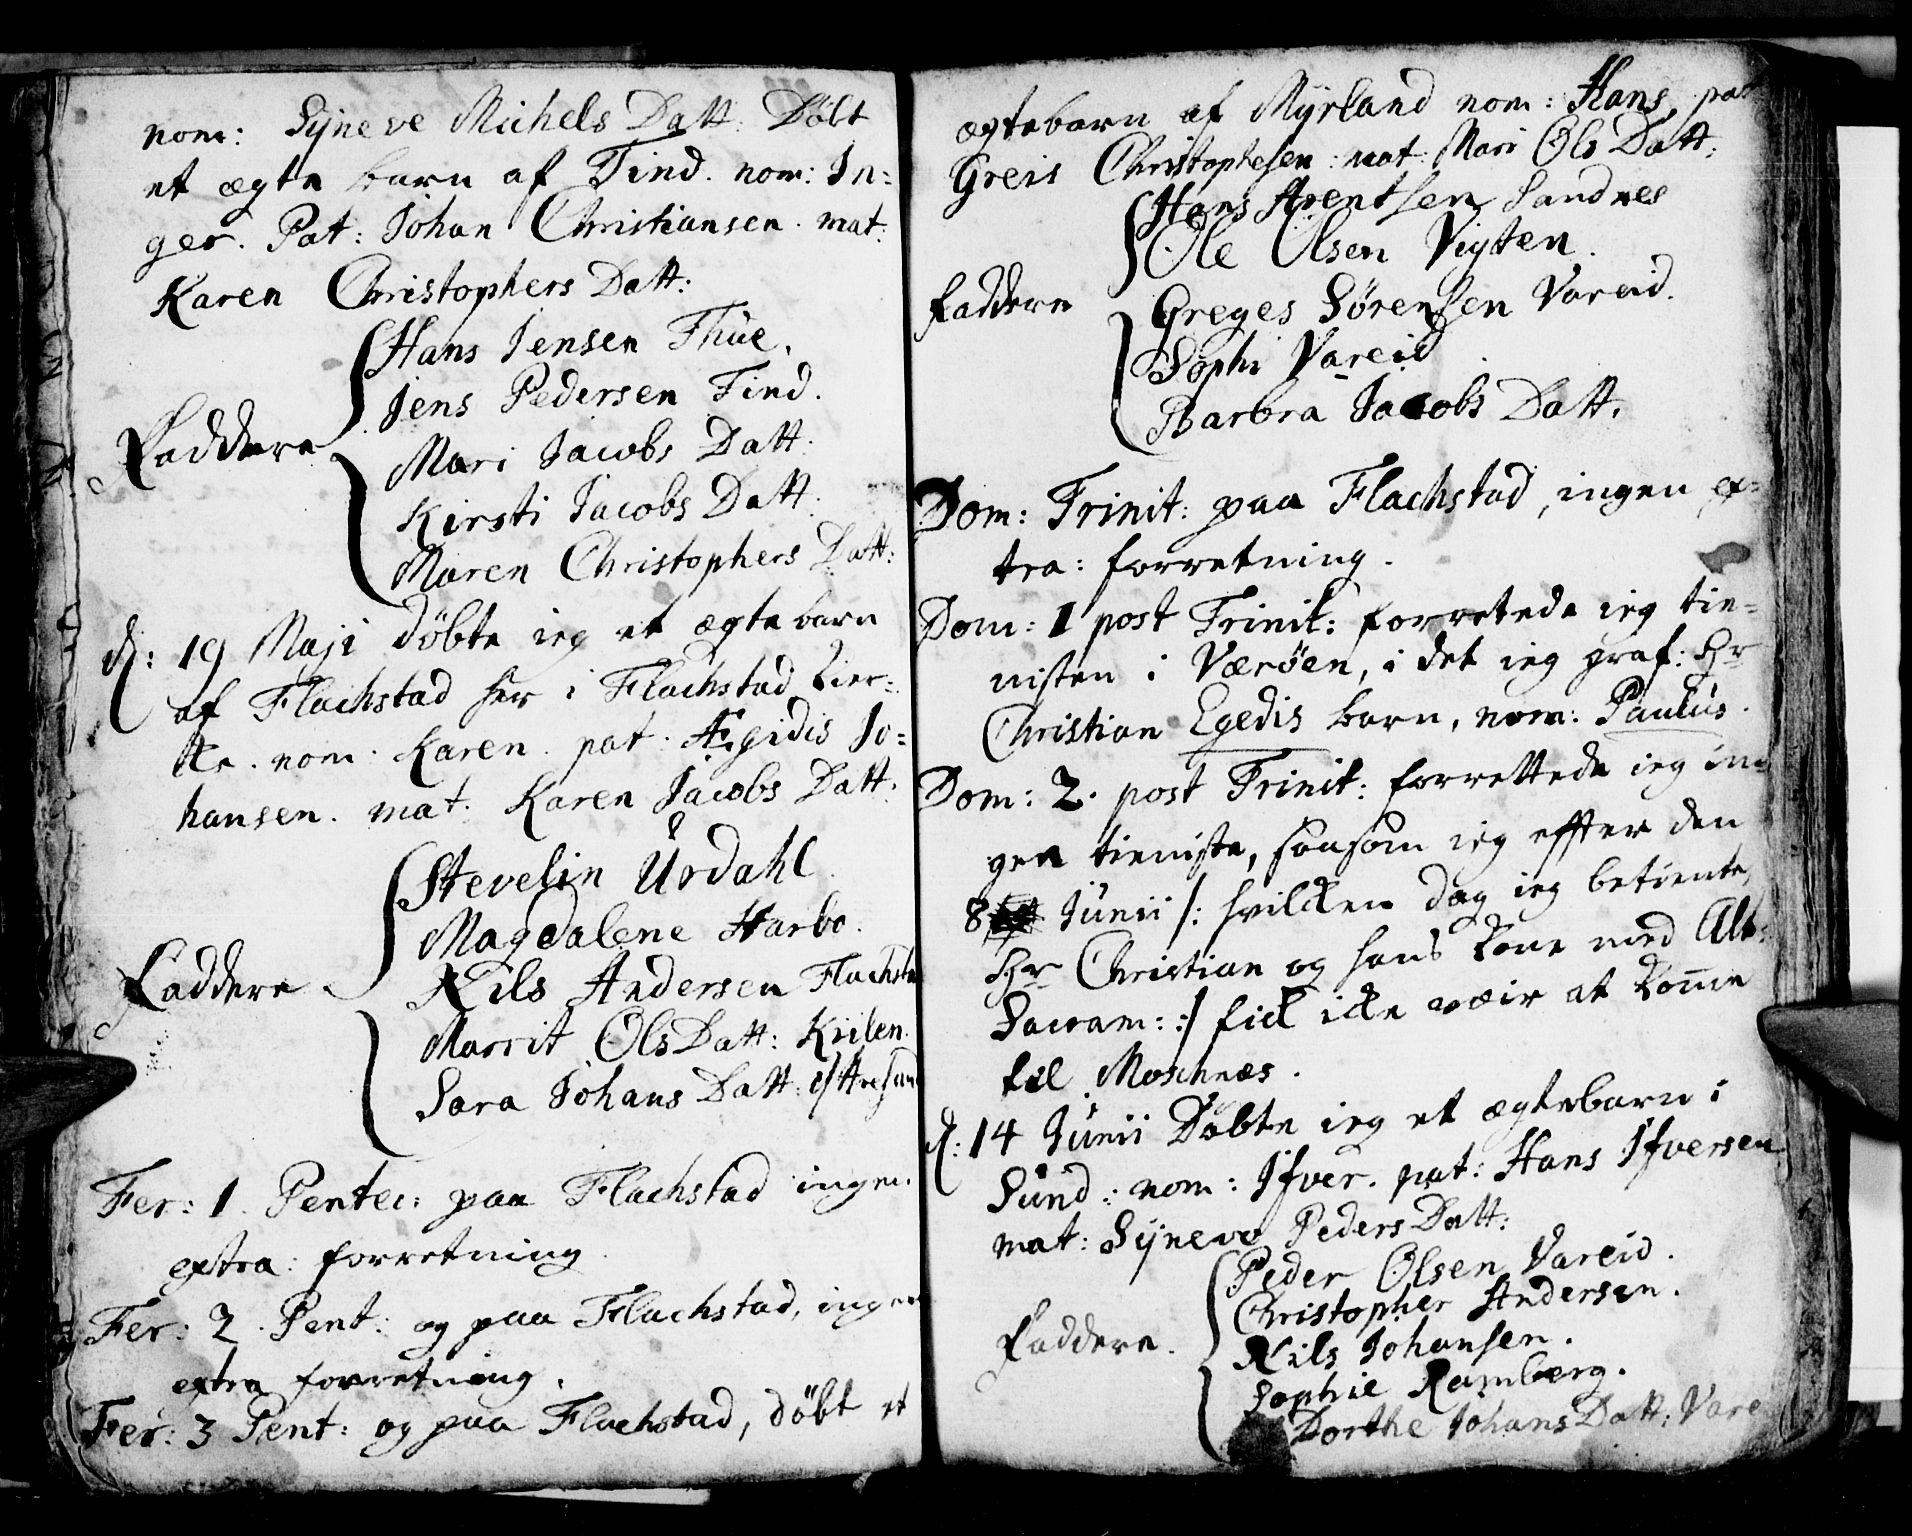 nom: Syneve Michels Datt. Døbt
et ægte barn af Tind. nom: In-
ger. Pat: Johan Christiansen. mat:
Karen Christophers Datt:
Hans Jensen Thue.
Jens Pedersen Tind.
Faddere
Mari Jacobs Datt:
Kirsti Jacobs Datt.
Maren Christophers Datt:
d: 19 Maji døbte ieg et ægte barn
af Flachstad her i Flachstad Kier-
ke. nom. Karen. pat. Ægidis Jo-
hansen. mat. Karen Jacobs Datt:
Stevelin Urdahl.
Magdalene Harbo.
Faddere
Nils Andersen Flachsta
Marrit Ols Datt:
Sara Johans Datt:
Fer: 1. Pentec: paa Flachstad ingen
extra: forretning.
Fer: 2. Pent: og paa Flachstad, ingen
extra forretning.
Fer: 3 Pent: og paa Flachstad, døbt et
ægtebarn af Myrland nom: Hans, pat
Greis Christophesen: mat: Mari Ols Datt:
Hans Arentsen Sandnes
Ole Olsen Vigten.
Faddere
Greges Sørensen Vareid.
Sophi Vareid
Barbra Jacobs Datt.
Dom: Trinit: paa Flachstad, ingen ex-
tra: forretning.
Dom: 1 post Trinit: forretede ieg tie-
nisten i Værøen, i det ieg graf: Hr
Christian Egedis barn, nom: Paulus.
Dom: 2. post Trinit: forrettede ieg in-
gen tieniste, saasom ieg effter den
8 Junii /: hvilken dag ieg betiente
Hr Christian og hans Kone med Alt:
Sacram: :/ fick icke væir at komme
til Moschnæs.
d: 14 Junii Døbte ieg et ægtebarn i
Sund: nom: Ifver. pat: Hans Ifversen
mat: Syneve Peders Datt:
Peder Olsen Vareid.
Christopher Andersen.
Faddere.
Nils Johansen.
Sophie Ramberg.
Dorthe Johans Datt: Vare